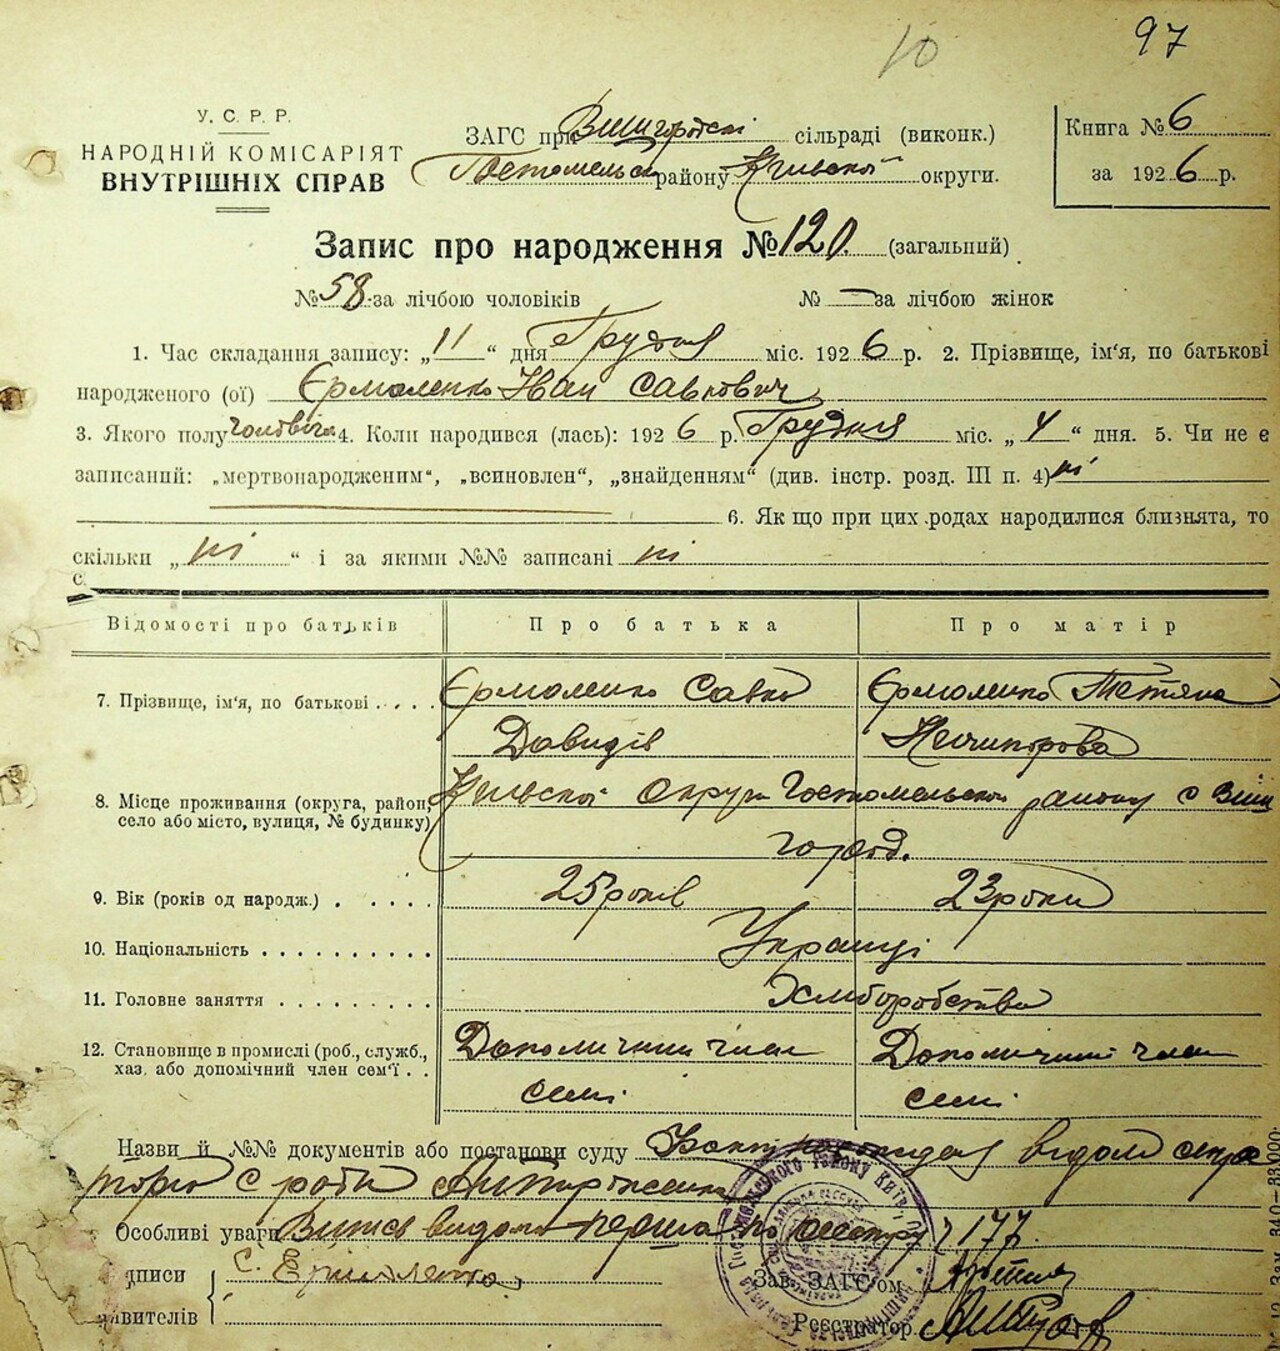 10 97
У. С. Р. Р.
НАРОДНІЙ КОМІСАРІЯТ
ВНУТРІШНІХ СПРАВ
ЗАГС при Вишгородскі сільраді (виконк.)
Гостомельск району Київської округи.
Книга № 6
за 1926 р.
Запис про народження № 120. (загальний)
№ 58 за лічбою чоловіків № — за лічбою жінок
1. Час складання запису: „11“ дня Грудня міс. 1926 р. 2. Прізвище, ім'я, по батькові
народженого (ої) Єрмоленко Іван Савкович
3. Якого полу чоловіча 4. Коли народився (лась): 1926 р. Грудня міс. „4“ дня. 5. Чи не є
записаний: „мертвонародженим“, „всиновлен“, „знайденням“ (див. інстр. розд. III п. 4) ні
6. Як що при цих родах народилися близнята, то
скільки „ні“ і за якими №№ записані ні
Відомості про батьків Про батька Про матір
7. Прізвище, ім'я, по батькові . . . . Єрмоленко Савка Єрмоленко Тетяна
Давидів Нечипорова
8. Місце проживання (округа, район, село або місто, вулиця, № будинку) Київскої округи Гостомельскои району с Виш
город.
9. Вік (років од народж.) . . . . . 25 років 23 роки
10. Національність . . . . . . . . . . Українці
11. Головне заняття . . . . . . . . . Хліборобство
12. Становище в промислі (роб., служб., хаз. або допомічний член сем'ї . . Допомічний член Допомічний член
семі семі
Назви й №№ документів або постанови суду
Особливі уваги видол перша по реєстру 177.
дписи С. Ермоленко Зав. ЗАГС'ом
явителів Реєстратор